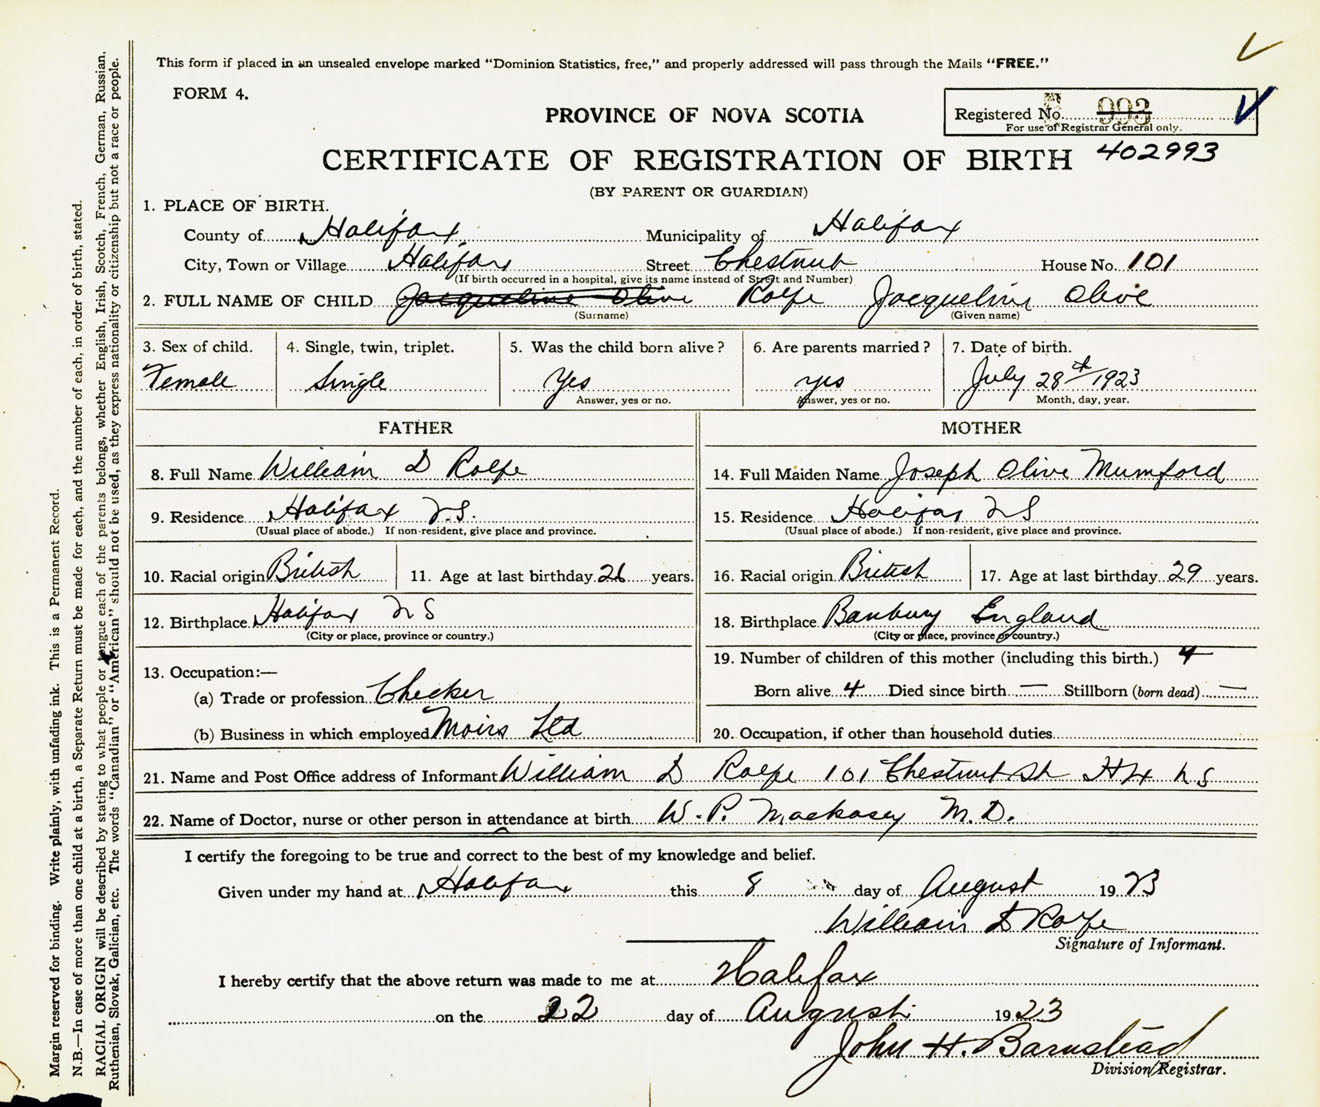 This form if placed in an unsealed envelope marked "Dominion Statistics, free," and properly addressed will pass through the Mails "FREE."
FORM 4.
PROVINCE OF NOVA SCOTIA
Registered No. 993
For use of Registrar General only.
CERTIFICATE OF REGISTRATION OF BIRTH 402993
(BY PARENT OR GUARDIAN)
1. PLACE OF BIRTH.
County of Halifax Municipality of Halifax
City, Town or Village Halifax Street Chestnut House No. 101
(If birth occurred in a hospital, give its name instead of Street and Number)
2. FULL NAME OF CHILD Jacqueline Olive Rolfe Jacqueline Olive
(Surname) (Given name)
3. Sex of child. 4. Single, twin, triplet. 5. Was the child born alive? 6. Are parents married? 7. Date of birth.
Female Single Yes yes July 28th 1923
Answer, yes or no. Answer, yes or no. Month, day, year.
FATHER MOTHER
8. Full Name William D Rolfe 14. Full Maiden Name Joseph Olive Mumford
9. Residence Halifax N.S. 15. Residence Halifax NS
(Usual place of abode.) If non-resident, give place and province. (Usual place of abode.) If non-resident, give place and province.
10. Racial origin British 11. Age at last birthday 26 years. 16. Racial origin British 17. Age at last birthday 29 years.
12. Birthplace Halifax NS 18. Birthplace Banbury England
(City or place, province or country.) (City or place, province or country.)
13. Occupation:— 19. Number of children of this mother (including this birth.) 4
(a) Trade or profession Checker Born alive 4 Died since birth — Stillborn (born dead) —
(b) Business in which employed Moirs Ltd 20. Occupation, if other than household duties
21. Name and Post Office address of Informant William D Rolfe 101 Chestnut St Hfx NS
22. Name of Doctor, nurse or other person in attendance at birth W. P. Mackasey M.D.
I certify the foregoing to be true and correct to the best of my knowledge and belief.
Given under my hand at Halifax this 8 day of August 1923
William D Rolfe
Signature of Informant.
I hereby certify that the above return was made to me at Halifax
on the 22 day of August 1923
John H. Barnstead
Division Registrar.
Margin reserved for binding. Write plainly, with unfading ink. This is a Permanent Record.
N.B.—In case of more than one child at a birth, a Separate Return must be made for each, and the number of each, in order of birth, stated.
RACIAL ORIGIN will be described by stating to what people or tongue each of the parents belongs, whether English, Irish, Scotch, French, German, Russian,
Ruthenian, Slovak, Galician, etc. The words "Canadian" or "American" should not be used, as they express nationality or citizenship but not a race or people.